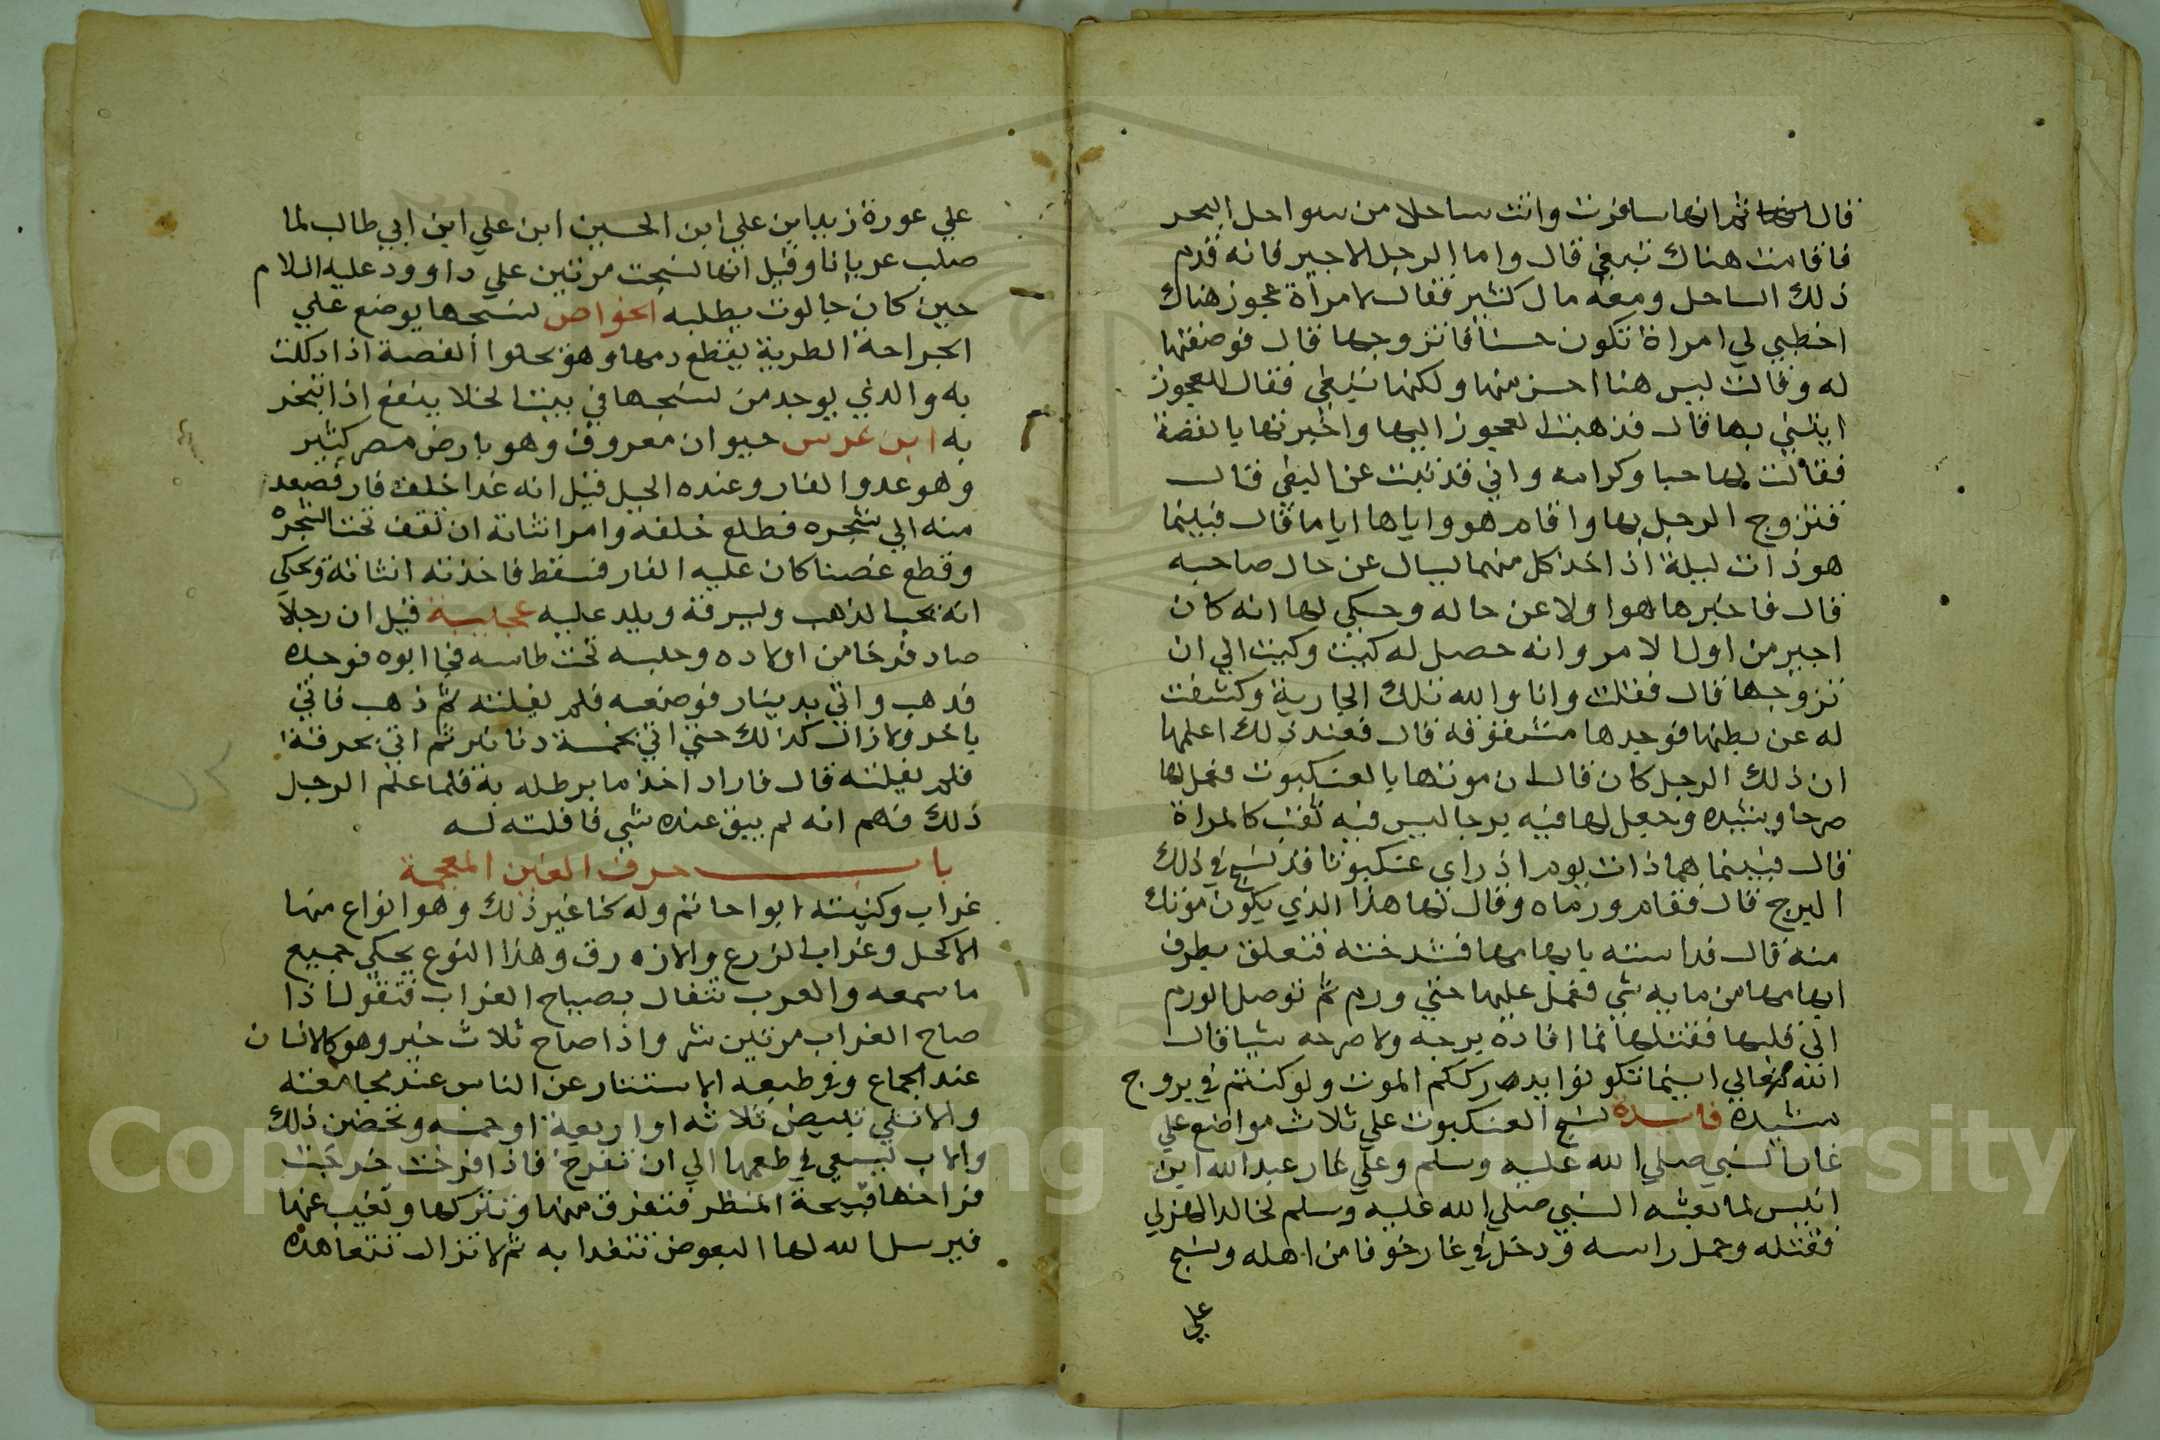 قال ثم انها سافرت واتت ساحلا من سواحل البحر
فاقامت هناك تبغي قال واما الرجل الاجير فانه قدم
ذلك الساحل ومعه مال كثير فقال لامراة عجوز هناك
اخطبي لي امراة تكون حسنا فاتزوجها قال فوصفتها
له وقالت ليس هنا احسن منها ولكنها تبغي فقال للعجوز
ايتني بها قال فذهبت العجوز اليها واخبرتها بالقصة
فقالت لها حبا وكرامه واني قد تبت عن البغي قال
فتزوج الرجل بها واقام هو واياها اياما قال فبينما
هو ذات ليلة اذ اخذ كل منهما يسال عن حال صاحبه
قال فاخبرها هوا ولا عن حاله وحكي لها انه كان
اجير من اول الامر وانه حصل له كيت وكيت الي ان
تزوجها قال فقلت وانا والله تلك الجارية وكشفت
له عن بطنها فوجدها مشقوقه قال فعند ذلك اعلمها
ان ذلك الرجل كان قال ان موتها بالعنكبوت فعمل لها
صرحا وشيده وجعل لها فيه برجا ليس فيه ثقب كالمراة
قال فبينما هما ذات يوم اذ راي عنكبوتا قد نسج في ذلك
البرج قال فقام ورماه وقال لها هذا الذي يكون موتك
منه قال فداسته بابهامها فشدخته فتعلق بطرف
ابهامها من مايه شي فعمل عليها حتي ورم ثم توصل الورم
الي قلبها فقتلها فما افاده برجه ولا صرحه شيا قال
الله تعالي اينما تكونوا يدرككم الموت ولو كنتم في بروج
مشيدة فايدة نسج العنكبوت علي ثلاث مواضع علي
غار النبي صلي الله عليه وسلم وعلي غار عبد الله ابن
انيس لما بعثه النبي صلي الله عليه وسلم لخالد الهزلي
فقتله وحمل راسه ودخل في غار خوفا من اهله ونسج
علي
علي عورة زيد ابن علي ابن الحسين ابن علي ابن ابي طالب لما
صلب عريانا وقيل انها نسجت مرتين علي داوود عليه السلام
حين كان جالوت يطلبه الخواص نسجها يوضع علي
الجراحة الطرية يقطع دمها وهو يجلوا الفضة اذا دلكت
به والذي يوجد من نسجها في بيت الخلا ينفع اذا تبخر
به ابن عرس حيوان معروف وهو بارض مصر كثير
وهو عدو الفار وعنده الحيل قيل انه غدا خلف فار فصعد
منه الي شجره فطلع خلفه وامر انثاته ان تقف تحت الشجره
وقطع غصنا كان عليه الفار فسقط فاخذته انثاته وحكي
انه يحب الذهب ويسرقه ويلد عليه عجيبة قيل ان رجلا
صاد فرخا من اولاده وحبسه تحت طاسه فجا ابوه فوجده
فذهب واتي بدينار فوضعه فلم يفلته ثم ذهب فاتي
باخر ولا زال كذالك حتي اتي بخمسة دنانير ثم اتي بخرقة
فلم يفلته قال فاراد اخذ ما برطله به فلما علم الرجل
ذلك فهم انه لم يبق عنده شي فافلته له
باب حرف الغين المعجمة
غراب وكنيته ابوا حاتم وله كنا غير ذلك وهو انواع منها
الاكحل وغراب الزرع والازرق وهذا النوع يحكي جميع
ما سمعه والعرب تتفال بصياح الغراب فتقول اذا
صاح الغراب مرتين شر واذا صاح ثلاث خير وهو كالانسان
عند الجماع وفي طبعه الاستتار عن الناس عند مجامعته
والانثي تبيض ثلاثه او اربعة او خمسه وتحضن ذلك
والاب يسعي في طعمها الي ان تفرخ فاذا افرخت خرجت
فراخها قبيحة المنظر فتفرق منها وتتركها وتغيب عنها
فيرسل الله لها البعوض تتغدا به ثم لا تزال تتعاهده